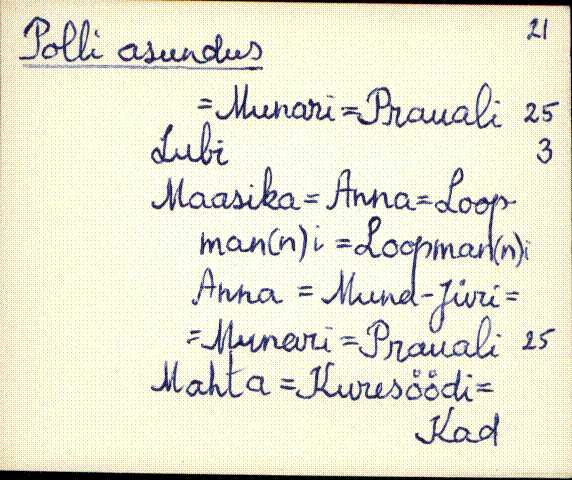 21
Polli asundus
=Munari=Prauali 25
Lubi 3
Maasika= Anna=Loop-
man(n)i =Loopman(n)i
Anna = Muna-Jüri=
=Munari=Prauali 25
Mahta =Kuresöödi=
Kad